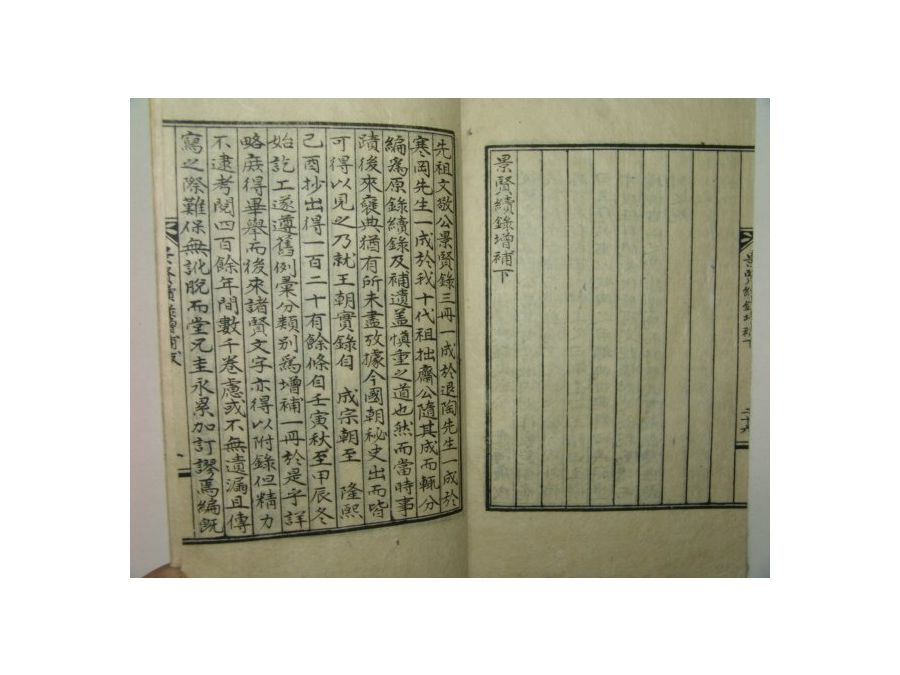 景賢續錄增補下
先祖文敬公景賢錄三冊一成於退陶先生一成於
寒岡先生一成於我十代祖拙齋公隨其成而輒分
編爲原錄續錄及補遺盖愼重之道也然而當時事
蹟後來襃典猶有所未盡攷據今國朝秘史出而皆
可得以見之乃就王朝實錄自 成宗朝至 隆熙
己酉抄出得一百二十有餘條自壬寅秋至甲辰冬
始訖工遂遵舊例彙分類別爲增補一冊於是乎詳
略庶得畢舉而後來諸賢文字亦得以附錄但精力
不逮考閱四百餘年間數千卷慮或不無遺漏且傳
寫之際難保無訛脫而堂兄圭永累加訂謬焉編旣